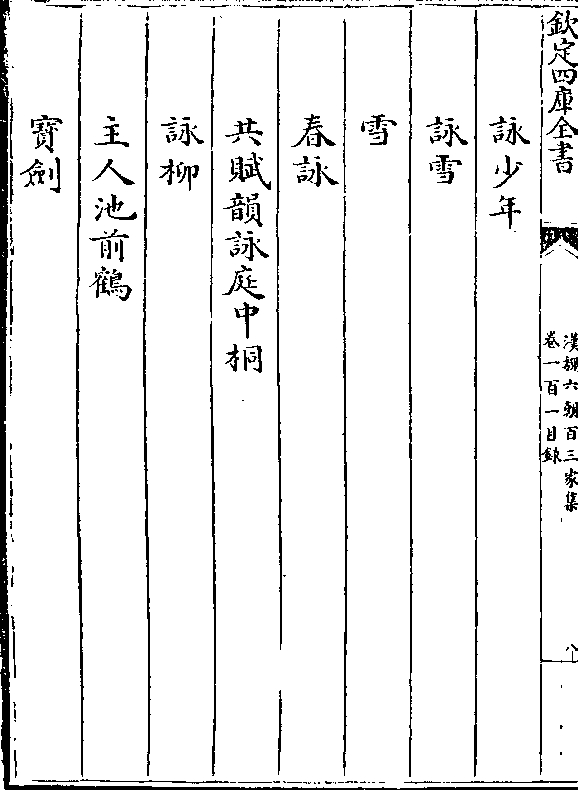 欽定四庫全書
漢魏六朝百三家集
卷一百一目錄
詠少年
詠雪
雪
春詠
共賦韻詠庭中桐
詠柳
主人池前鶴
寶劍